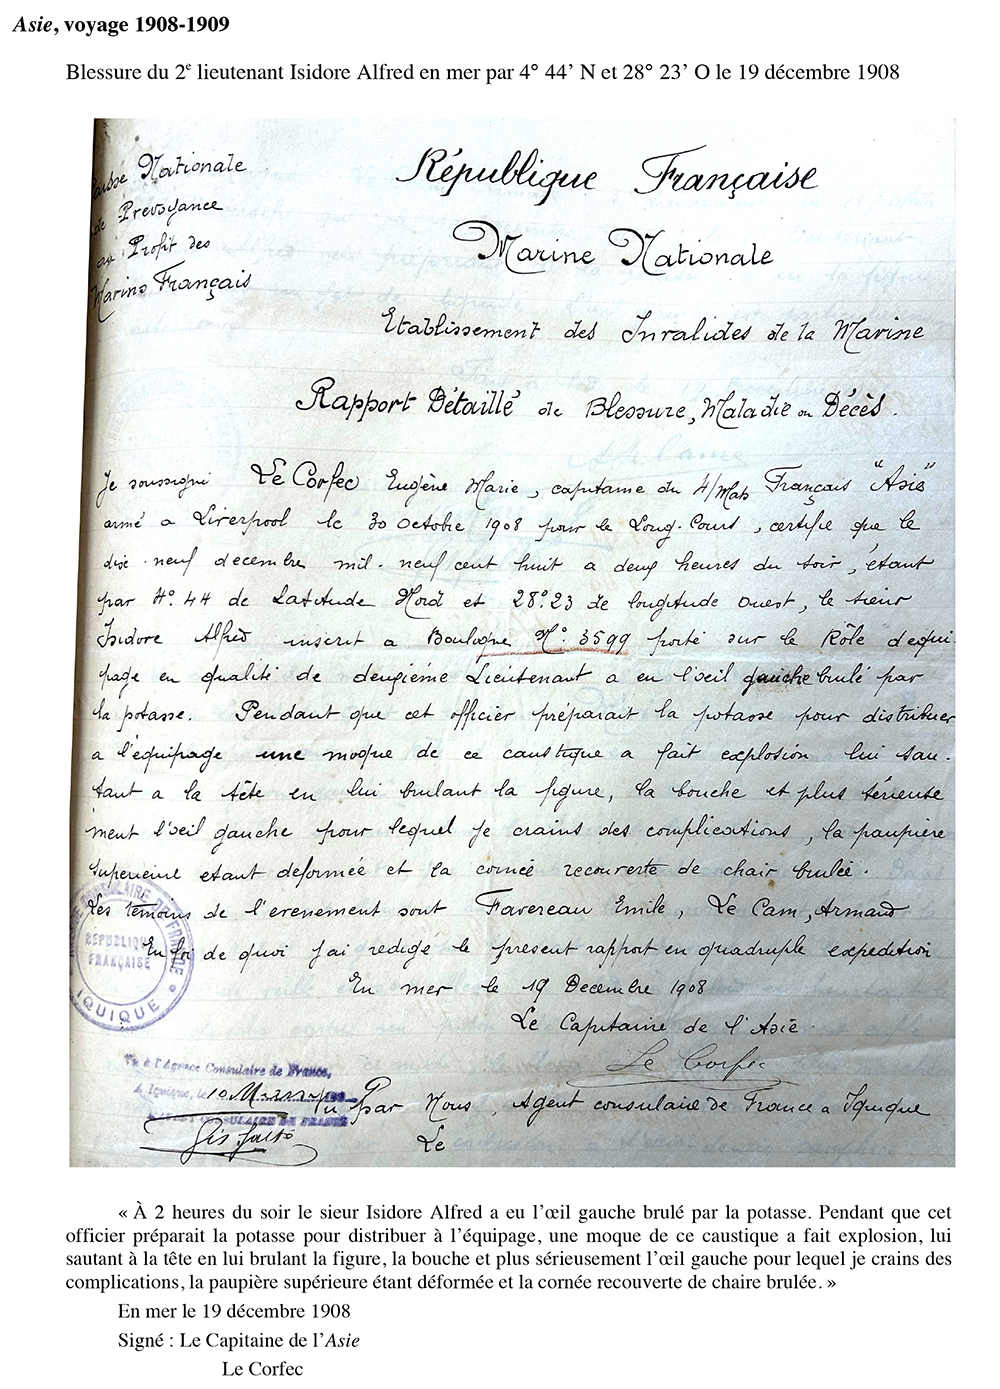 Asie, voyage 1908-1909
Blessure du 2e lieutenant Isidore Alfred en mer par 4° 44’ N et 28° 23’ O le 19 décembre 1908
Caisse Nationale
de Prévoyance
au Profit des
Marins Français
République Française
Marine Nationale
Etablissement des Invalides de la Marine
Rapport Détaillé de Blessure, Maladie ou Décès.
Je soussigné Le Corfec Eugène Marie, capitaine du 4/Mats Français "Asie"
armé a Liverpool le 30 Octobre 1908 pour le Long-Cours, certifie que le
dix-neuf decembre mil-neuf cent huit a deux heures du soir, étant
par 4°.44 de Latitude Nord et 28°.23 de longitude Ouest, le sieur
Isidore Alfred inscrit a Boulogne N° 3599 porté sur le Rôle d'equi-
page en qualité de deuxiéme Lieutenant a eu l'oeil gauche brulé par
la potasse. Pendant que cet officier préparait la potasse pour distribuer
a l'équipage une moque de ce caustique a fait explosion lui sau-
tant a la tête en lui brulant la figure, la bouche et plus sérieuse
ment l'oeil gauche pour lequel je crains des complications, la paupière
superieure etant deformée et la cornée recouverte de chair brulée.
Les témoins de l'evenement sont Favereau Emile, Le Cam, Armand
En foi de quoi j'ai redigé le present rapport en quadruple expedition
En mer le 19 Decembre 1908
Le Capitaine de l'Asie.
Le Corfec
AGENCE CONSULAIRE DE FRANCE
RÉPUBLIQUE
FRANÇAISE
IQUIQUE
Vu à l'Agence Consulaire de France,
A Iquique, le 10 Mars 190
AGENT CONSULAIRE DE FRANCE
Vu par Nous, Agent consulaire de France a Iquique
Le
« À 2 heures du soir le sieur Isidore Alfred a eu l’œil gauche brulé par la potasse. Pendant que cet
officier préparait la potasse pour distribuer à l’équipage, une moque de ce caustique a fait explosion, lui
sautant à la tête en lui brulant la figure, la bouche et plus sérieusement l’œil gauche pour lequel je crains des
complications, la paupière supérieure étant déformée et la cornée recouverte de chaire brulée. »
En mer le 19 décembre 1908
Signé : Le Capitaine de l’Asie
Le Corfec